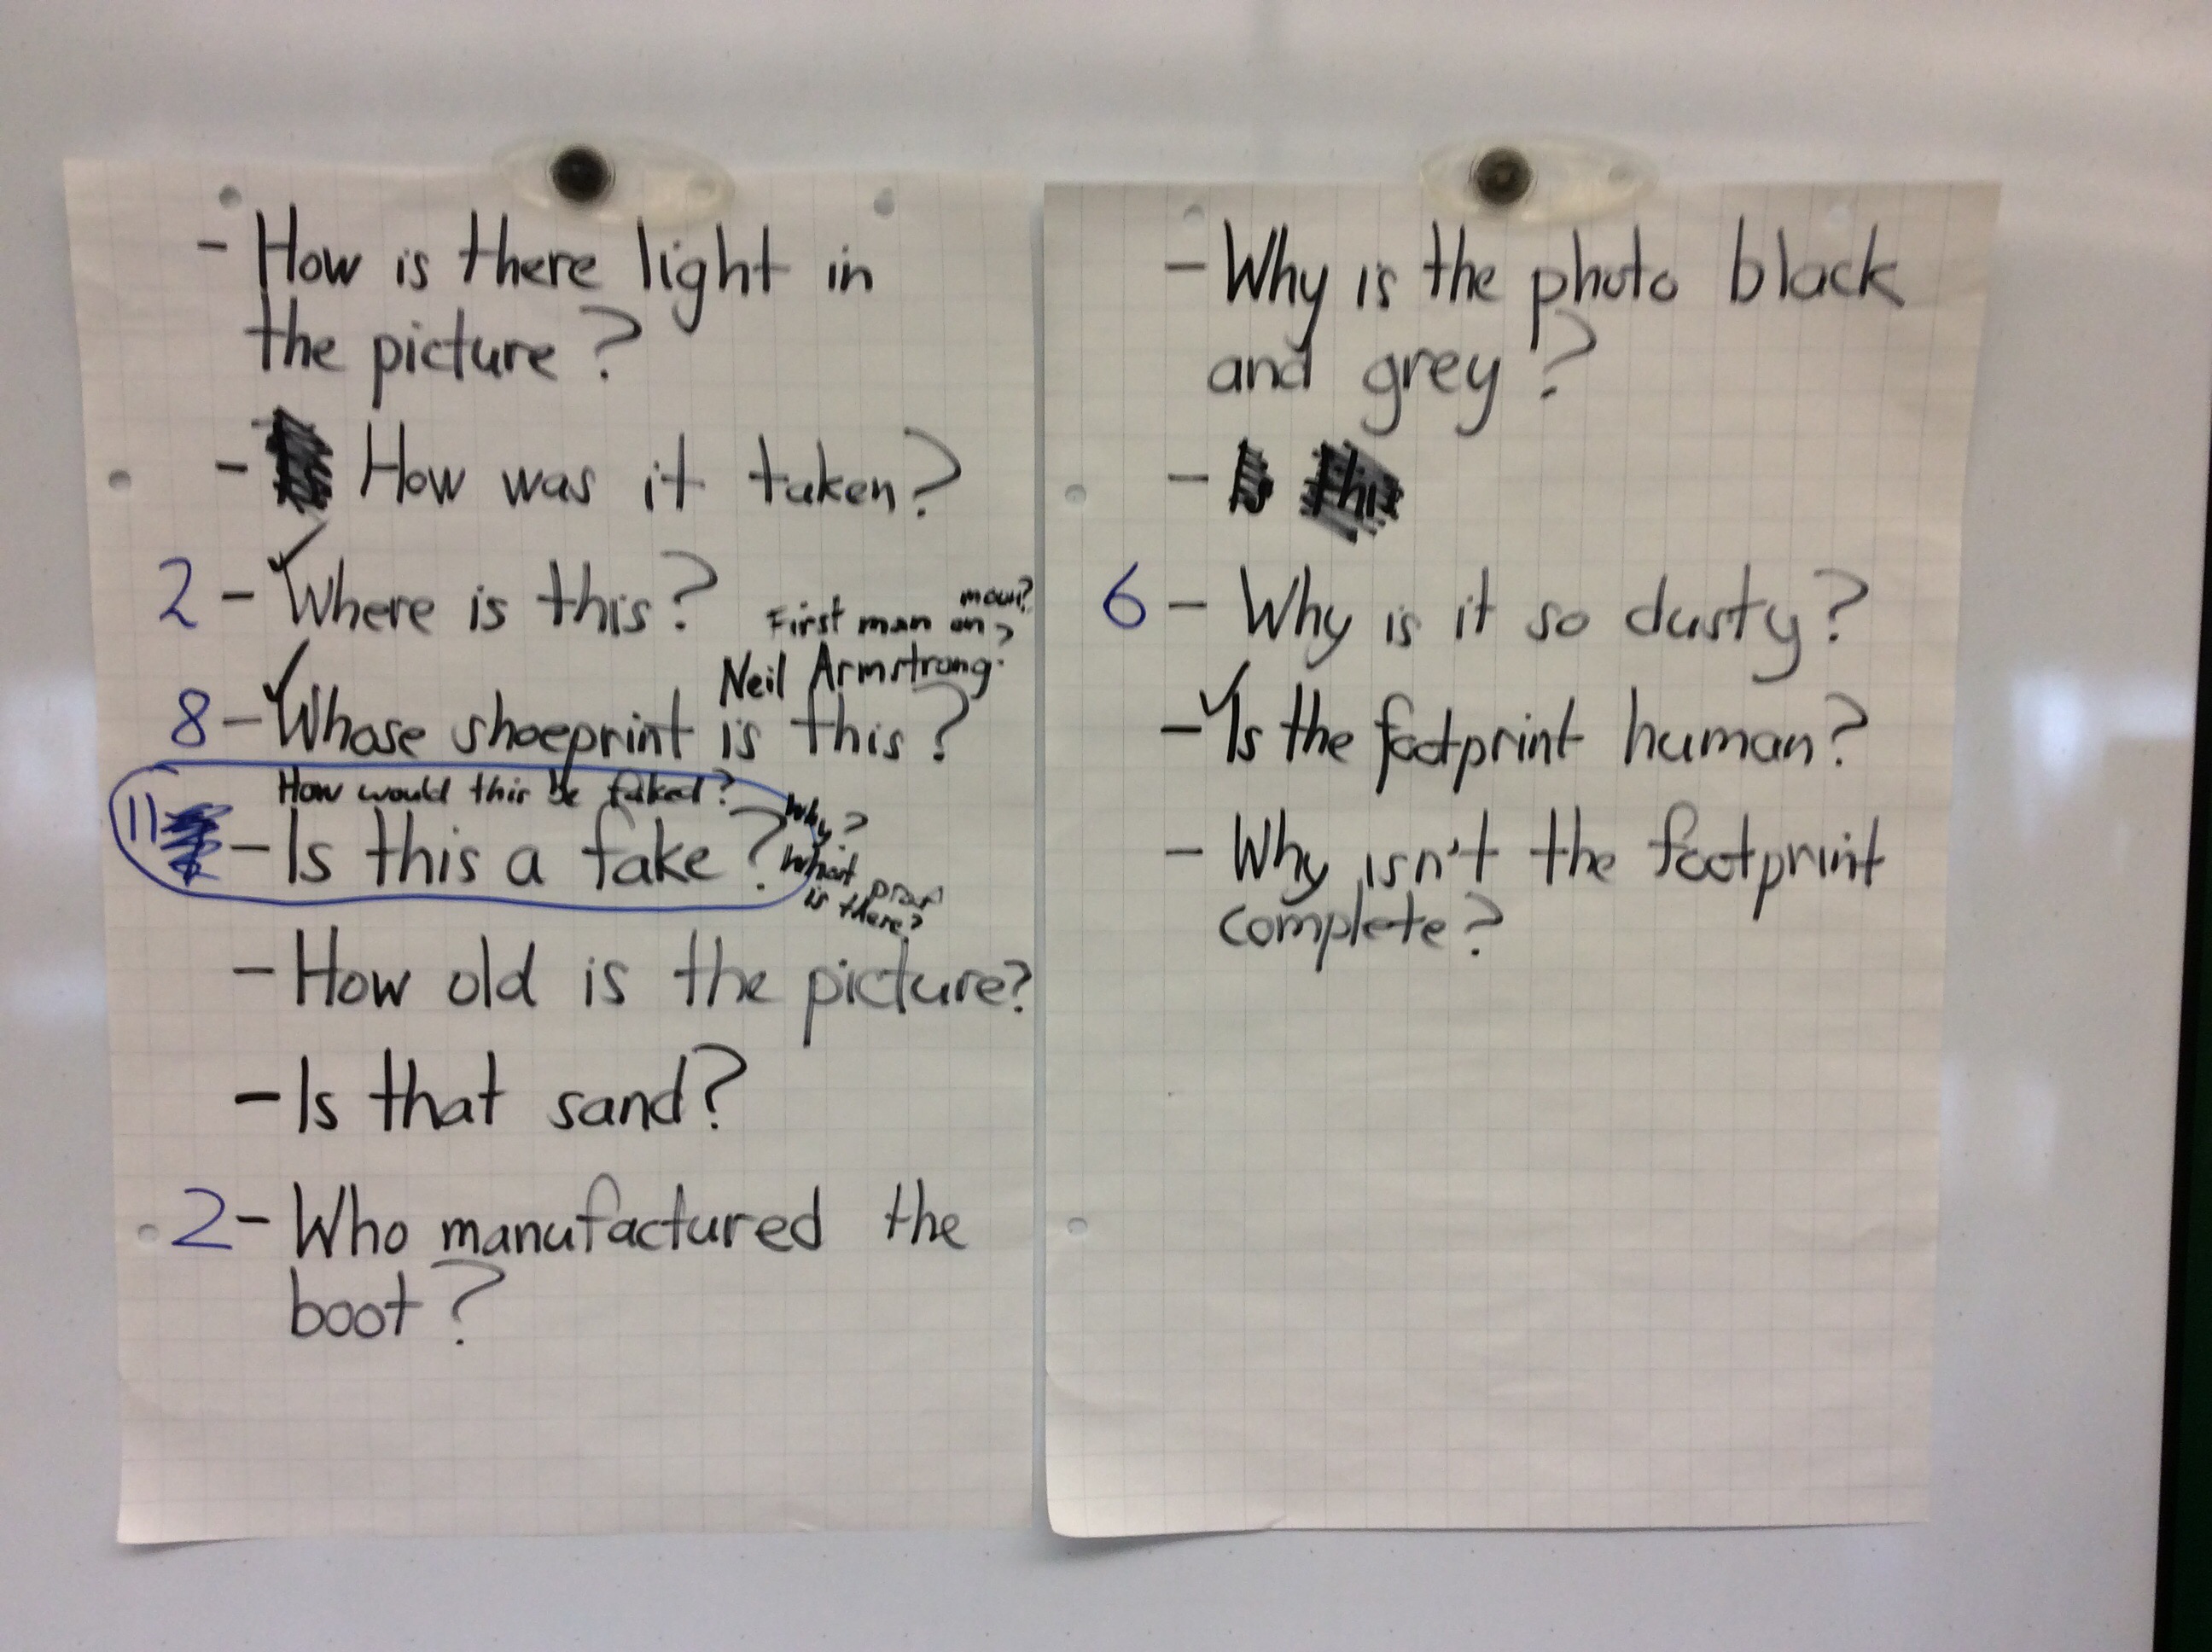 - How is there light in
the picture?
- How was it taken?
2 - Where is this?
First man on moon?
Neil Armstrong.
8 - Whose shoeprint is this?
How would this be faked?
11 - Is this a fake? Why?
What proof
is there?
- How old is the picture?
- Is that sand?
2 - Who manufactured the
boot?
- Why is the photo black
and grey?
- Is this
6 - Why is it so dusty?
- Is the footprint human?
- Why isn't the footprint
complete?